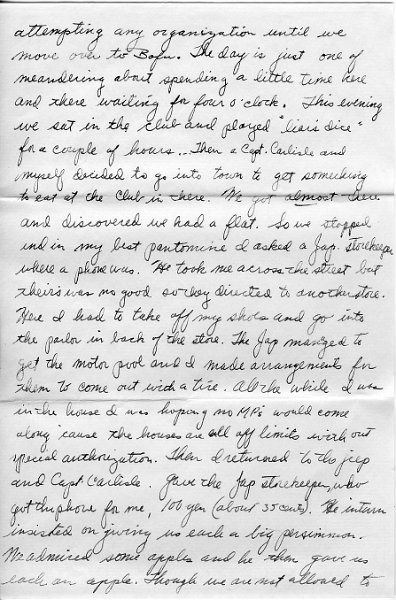 attempting any organization until we
move over to Bofu. The day is just one of
meandering about spending a little time here
and there waiting for four o'clock. This evening
we sat in the club and played "liar's dice"
for a couple of hours... Then a Capt. Carlisle and
myself decided to go into town to get something
to eat at the club in there. We got almost there
and discovered we had a flat. So we stopped
and in my best pantomine I asked a Jap. storekeeper
where a phone was. He took me across the street but
theirs was no good so they directed to another store.
Here I had to take off my shoes and go into
the parlor in back of the store. The Jap managed to
get the motor pool and I made arrangements for
them to come out with a tire. All the while I was
in the house I was hoping no MPs would come
along 'cause the houses are all off limits with out
special authorization. Then I returned to the jeep
and Capt Carlisle. Gave the Jap storekeeper, who
got the phone for me, 100 yen (about 35 cents). He in turn
insisted on giving us each a big persimmon.
We admired some apples and he then gave us
each an apple. Though we are not allowed to